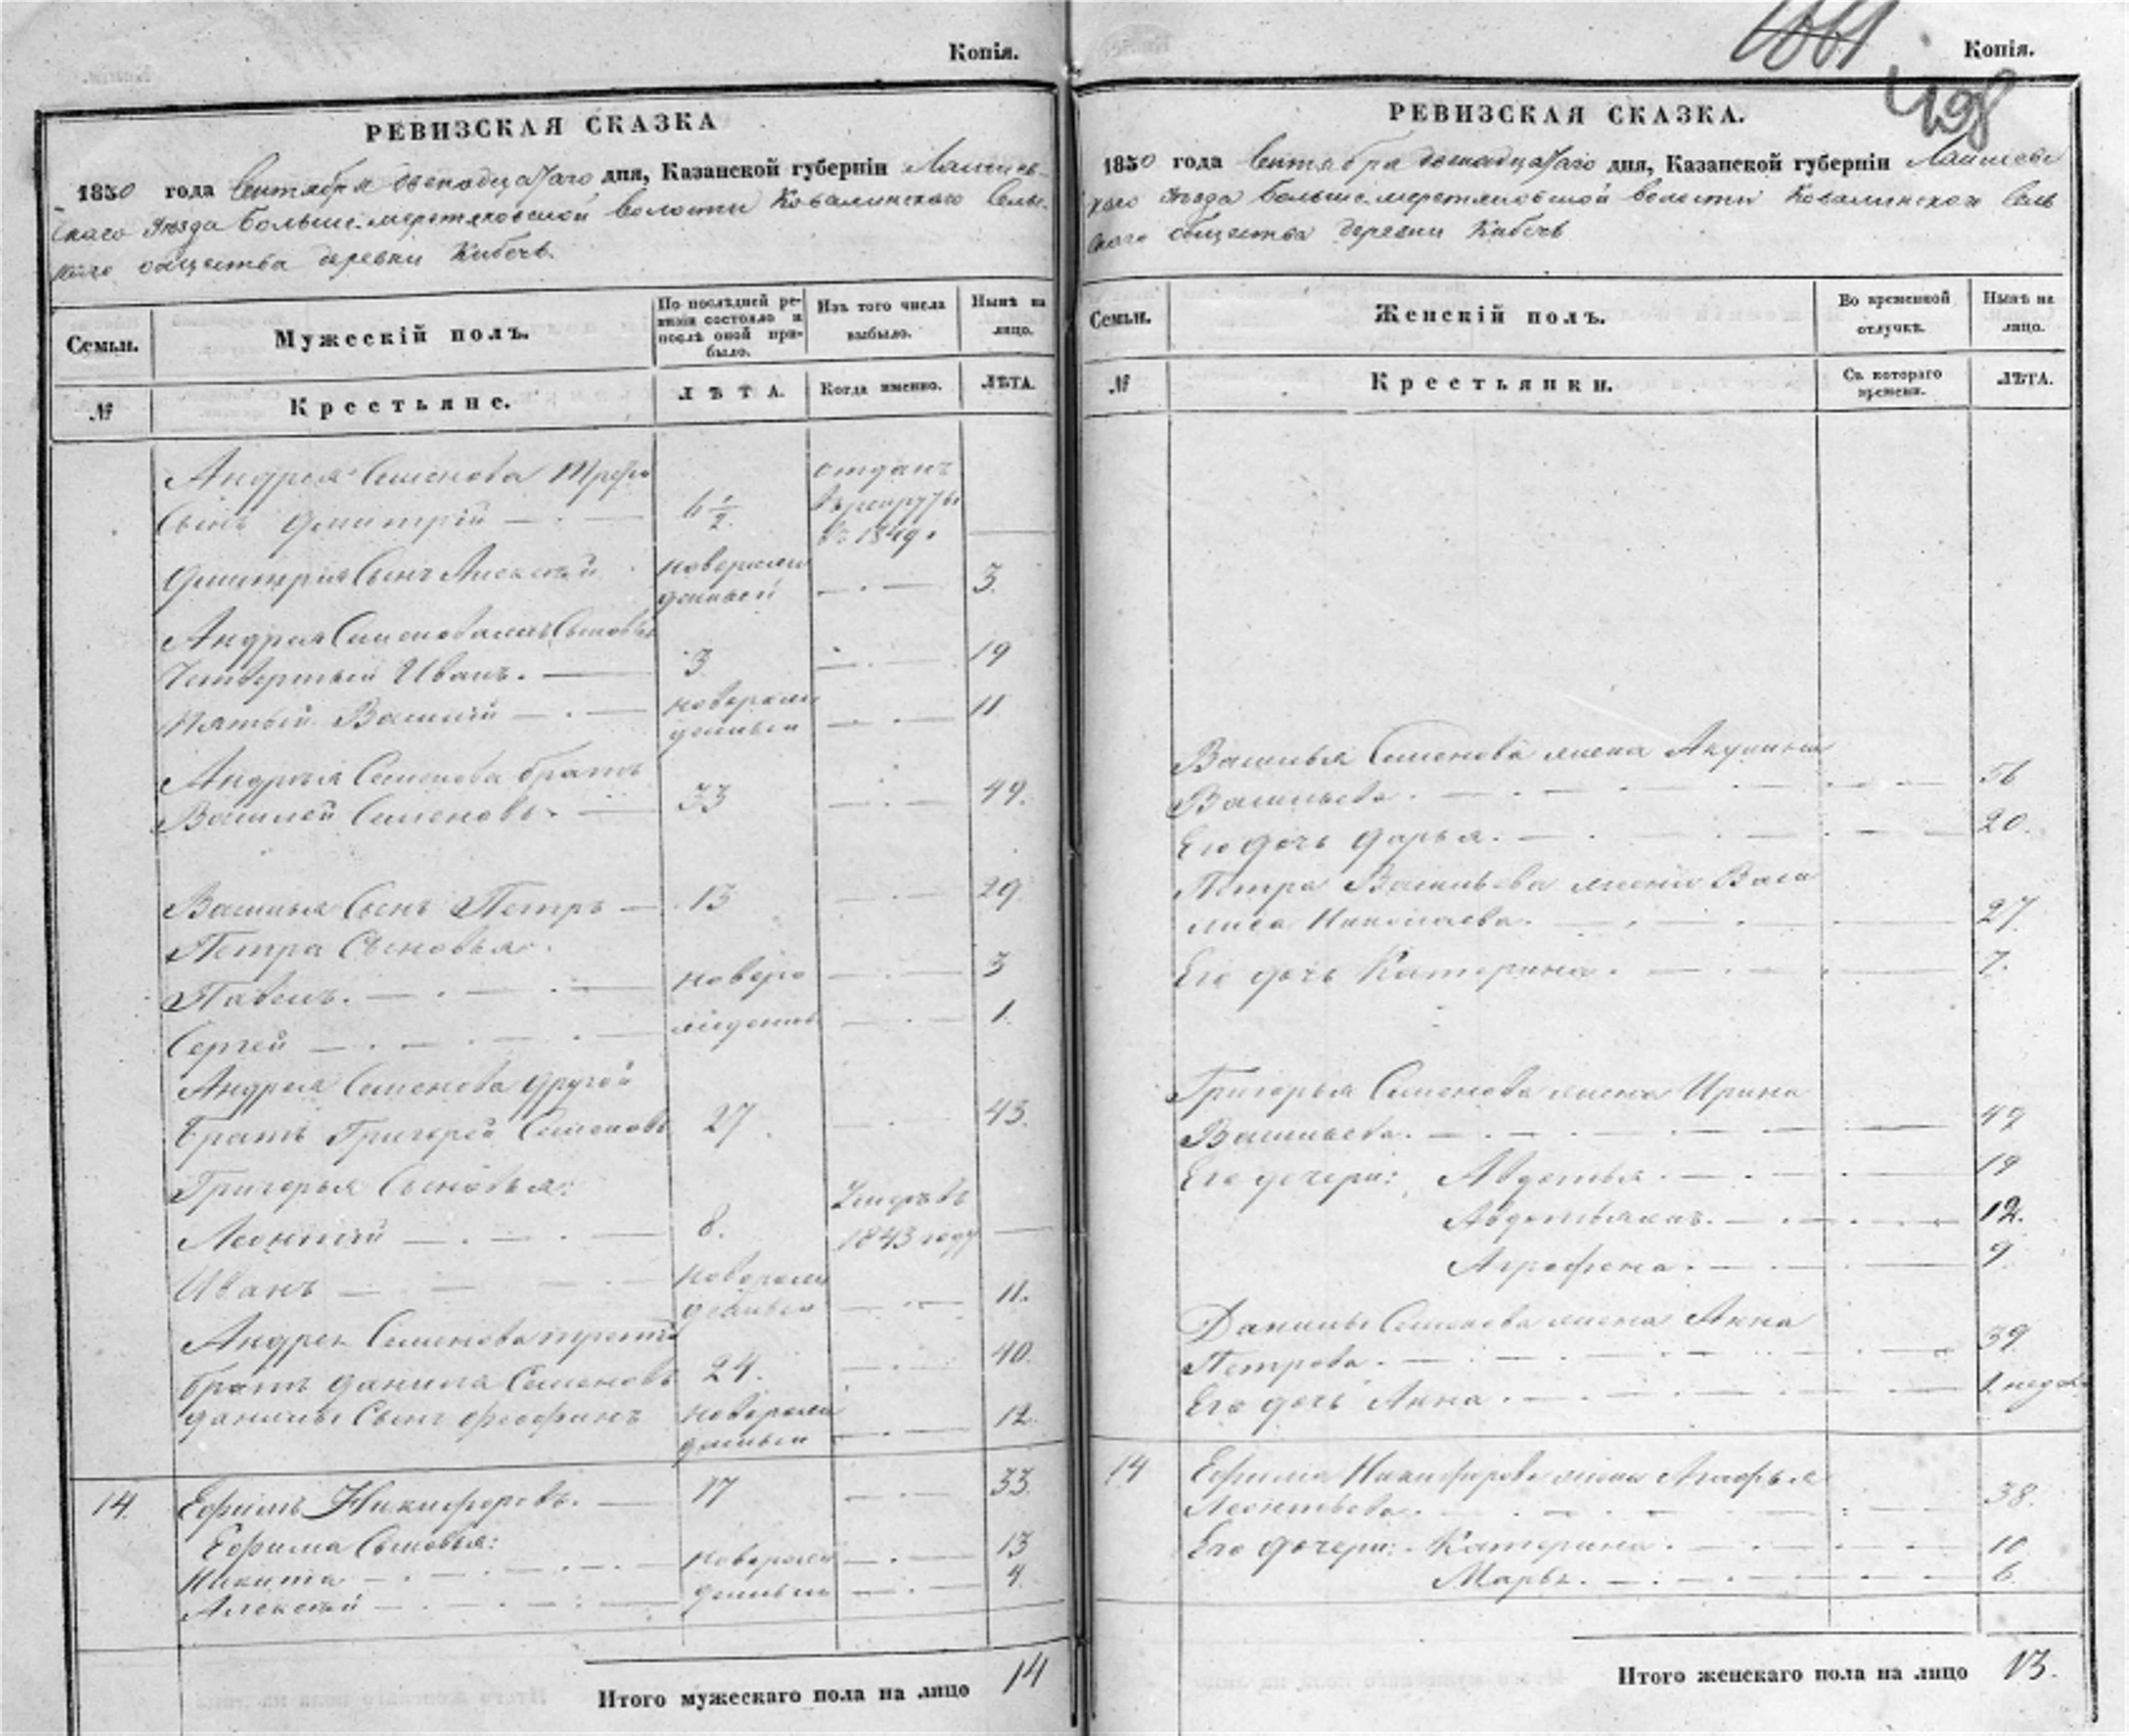 Копія.
РЕВИЗСКАЯ СКАЗКА
1850 года Сентября двенадцатаго дня, Казанской губерніи Лаишев-
скаго Уѣзда Большемеретяковской волости Ковалинскаго Сель-
скаго общества деревни Кибечь.
Семьи.
Мужескій полъ.
По послѣдней ре-
визіи состояло и
послѣ оной при-
было.
Изъ того числа
выбыло.
Нынѣ на
лицо.
№
Крестьяне.
ЛѢТА.
Когда именно.
ЛѢТА.
Андрея Семенова
отданъ
Сынъ Дмитрій
в рекруты
въ 1849.
Дмитрія Сынъ Алексѣй
новорож
денный
3.
Андрея Семенова Сыновья
Четвертый Иванъ.
3.
19
Пятый Василій
новорож
денный
11
Андрея Семенова братъ
Василей Семеновъ.
33
49.
Василья Сынъ Петръ
13
29
Петра Сыновья:
Павелъ.
новоро
3
Сергей
жденные
1.
Андрея Семенова другой
братъ Григорей Семеновъ
27
43.
Григорья Сыновья:
Умеръ въ
Леонтій
8.
1843 году
Иванъ
новорож
денный
11.
Андрея Семенова третій
братъ Данила Семеновъ
24.
40.
Данилы Сынъ
новорож
денный
12.
14.
Ефимъ Никифоровъ.
17
33.
Ефима Сыновья:
Никита
новорож
13
Алексѣй
денные
4.
Итого мужескаго пола на лицо
14
Копія.
498
РЕВИЗСКАЯ СКАЗКА.
1850 года Сентября двенадцатаго дня, Казанской губерніи Лаишевс
каго Уѣзда Большемеретяковской волости Ковалинскаго Сель
скаго общества деревни Кибечь
Семьи.
Женскій полъ.
Во временной
отлучкѣ.
Нынѣ на
лицо.
№
Крестьянки.
Съ котораго
времени.
ЛѢТА.
Василья Семенова жена Акулина
Васильева.
56
Его дочь Дарья.
20.
Петра Васильева жена Васи
лиса Николаева.
27.
Его дочь Катерина.
7.
Григорья Семенова жена Ирина
Васильева.
Его дочери: Авдотья.
19
12.
Аграфена.
9.
Данилы Семенова жена Анна
Петрова.
39
Его дочь Анна.
14
Ефима Никифорова жена Агафья
Леонтьева.
38.
Его дочери: Катерина.
10
Марья.
6.
Итого женскаго пола на лицо
13.